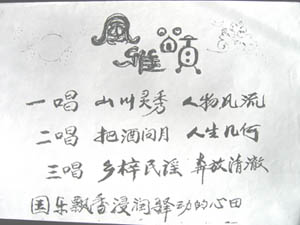 風雅頌
一唱 山川灵秀 人物风流
二唱 把酒问月 人生几何
三唱 乡梓民谣 奔放清澈
国乐飘香浸润驿动的心田